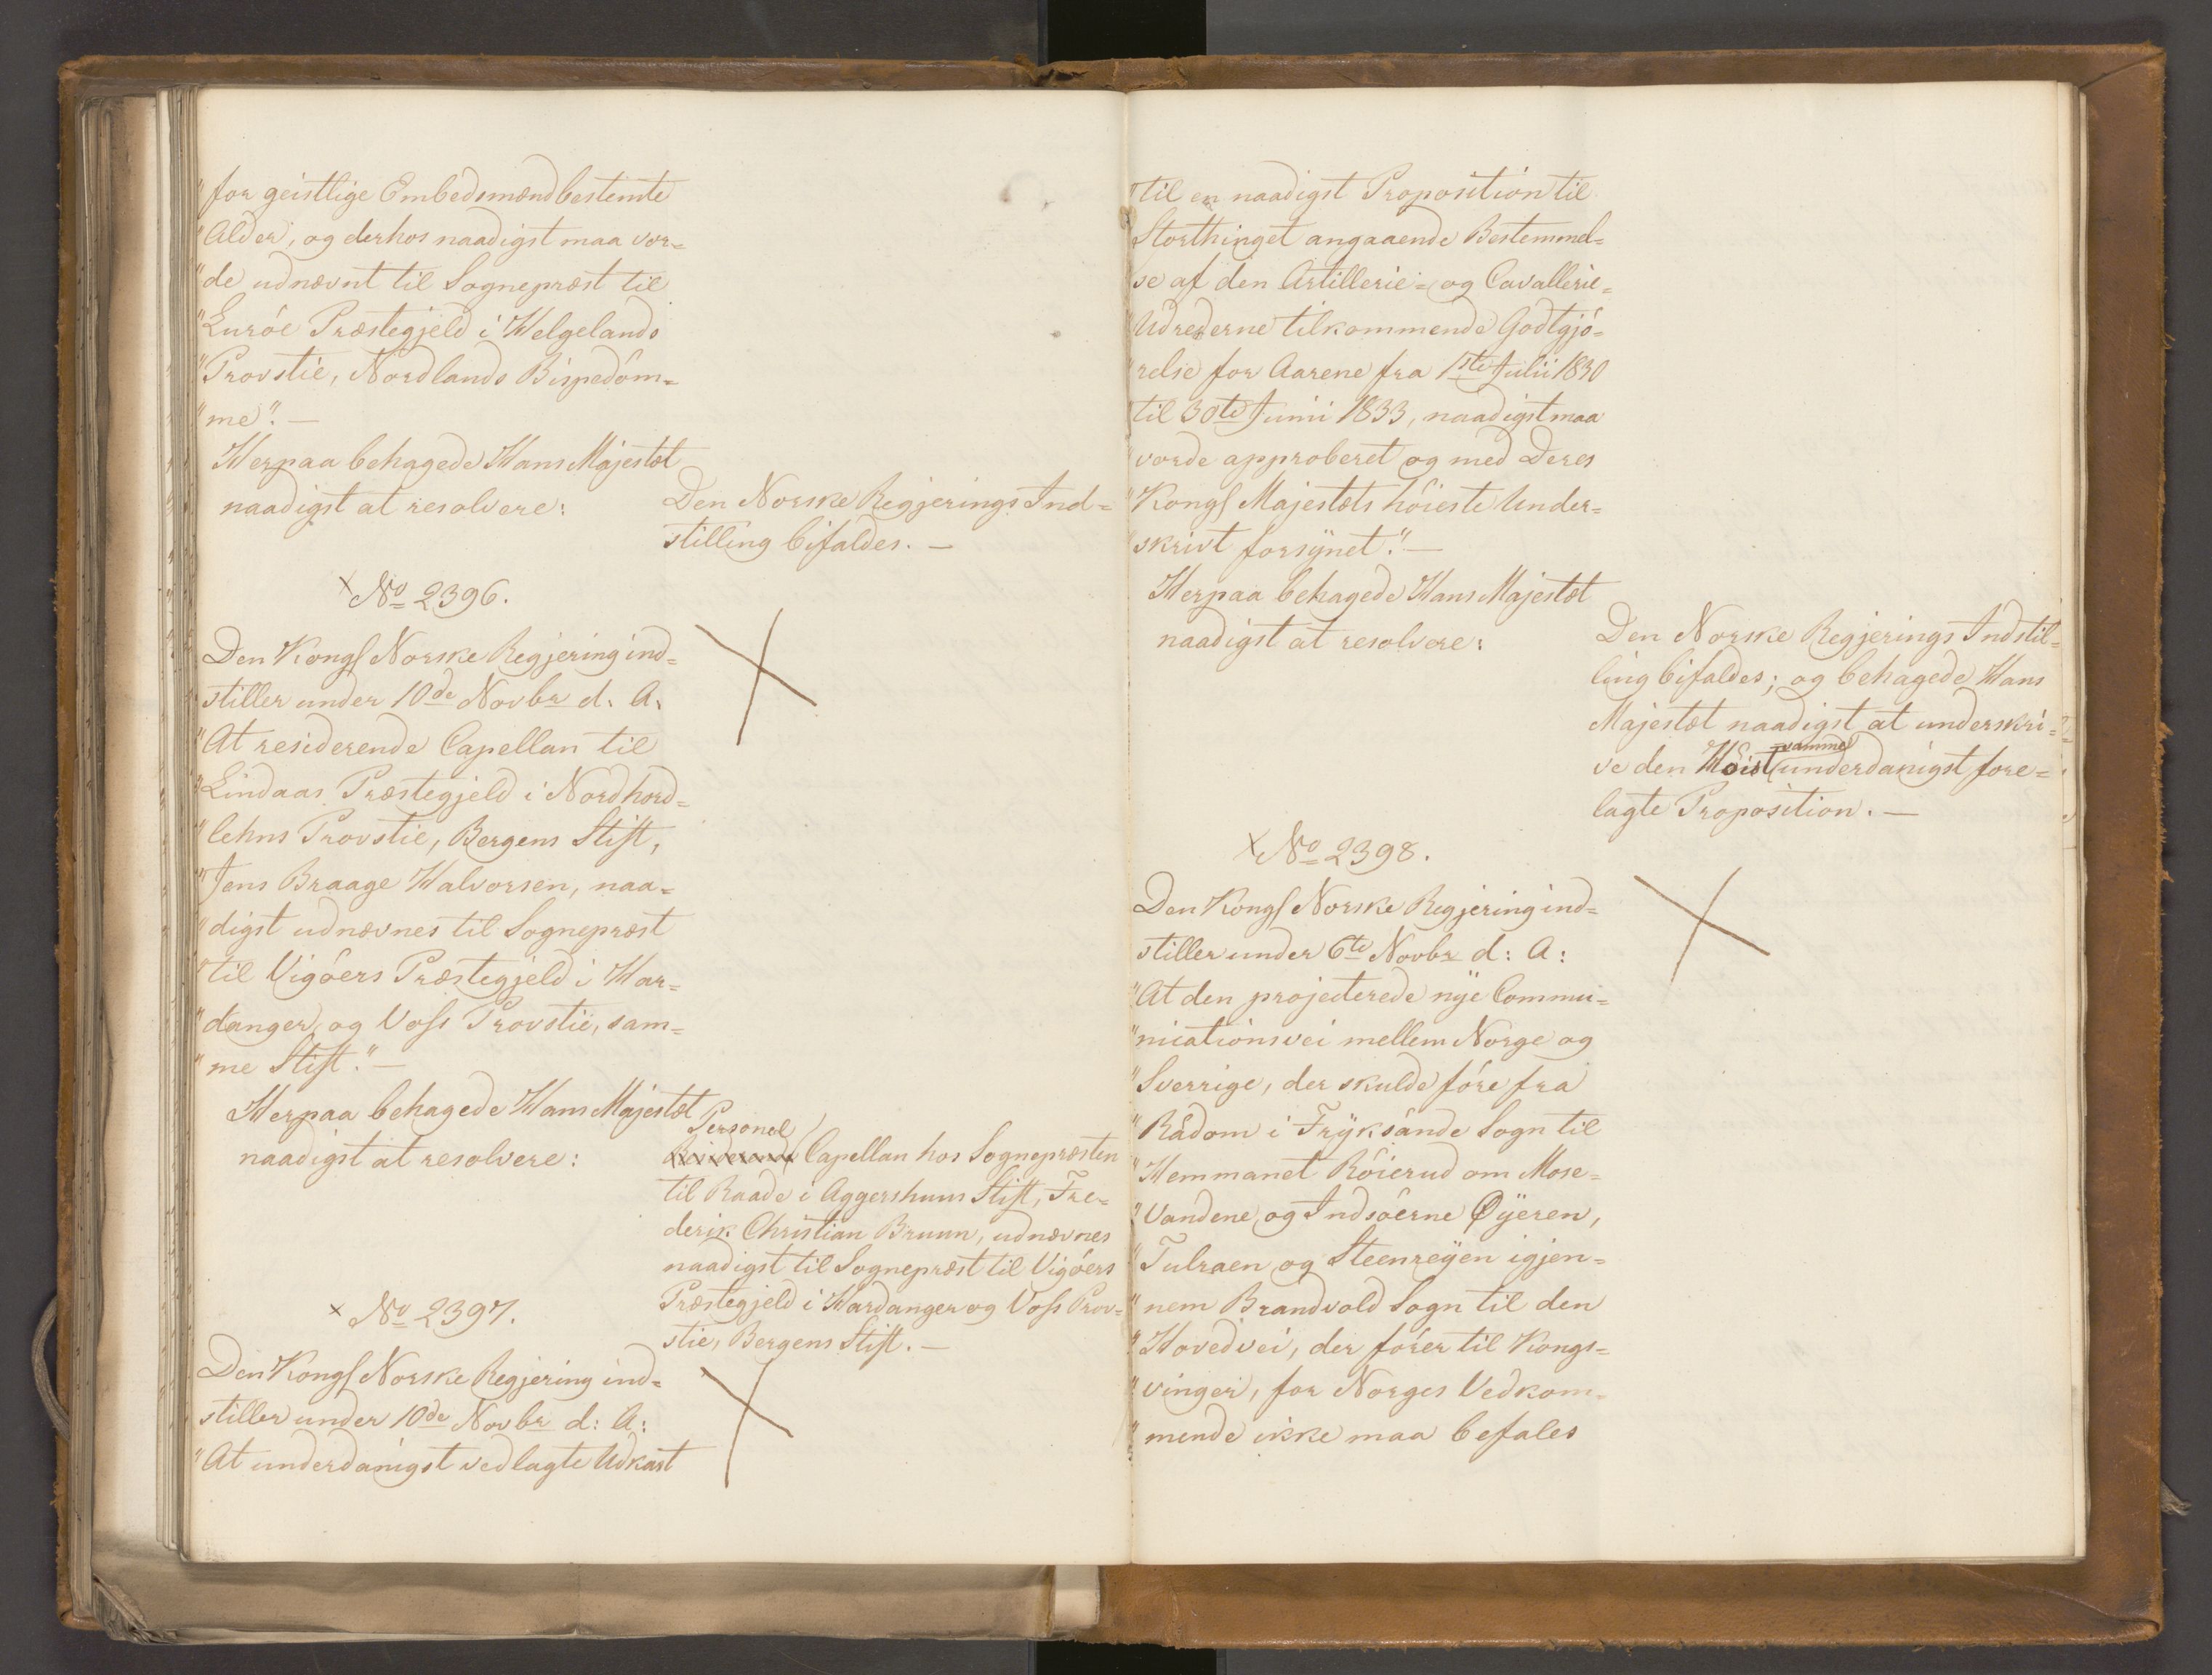 "for geistlige Embedsmænd bestemte
"Alder, og derhos naadigst maa vor=
"de udnævnt til Sognepræst til
"Luröe Præstegjeld i Helgelands
"Provstie, Nordlands Bispedöm=
"me". —
Herpaa behagede Hans Majestæt
naadigst at resolvere:
Den Norske Regjerings Ind=
stilling bifaldes. —
x No 2396.
Den Kongl Norske Regjering ind=
stiller under 10de Novbr d: A:
"At residerende Capellan til
"Lindaas Præstegjeld i Nordhord=
"lehns Provstie, Bergens Stift,
"Jens Braage Halvorsen, naa=
"digst udnævnes til Sognepræst
"til Vigöers Præstegjeld i Har=
"danger og Voss Provstie, sam=
"me Stift." —
Herpaa behagede Hans Majestæt
naadigst at resolvere:
Personel
Residerende Capellan hos Sognepræsten
til Raade i Aggershuus Stift, Fre=
derik Christian Bruun, udnævnes
naadigst til Sognepræst til Vigöers
Præstegjeld i Hardanger og Voss Prov=
stie, Bergens Stift. —
x No 2397.
Den Kongl Norske Regjering ind=
stiller under 10de Novbr d: A:
"At underdanigst vedlagte Udkast
"til en naadigst Proposition til
"Storthinget angaaende Bestemmel=
"se af den Artillerie= og Cavallerie=
"Udrederne tilkommende Godtgjö=
"relse for Aarene fra 1ste Julii 1830
"til 30te Junii 1833, naadigst maa
"vorde approberet og med Deres
"Kongl Majestæts höieste Under=
"skrivt forsynet." —
Herpaa behagede Hans Majestæt
naadigst at resolvere:
Den Norske Regjerings Indstil=
ling bifaldes; og behagede Hans
Majestæt naadigst at underskri=
ve den Höistsamme underdanigst fore=
lagte Proposition. —
x No 2398.
Den Kongl Norske Regjering ind=
stiller under 6te Novbr d: A:
"At den projecterede nye Commu=
"nicationsvei mellem Norge og
"Sverrige, der skulde före fra
"Rådom i Fryksände Sogn til
"Hemmanet Röierud om Mose=
"Vandene og Indsöerne Öyeren,
"Tulraen og Steenreyen igjen=
"nem Brandvold Sogn til den
"Hovedvei, der förer til Kongs=
"vinger, for Norges Vedkom=
"mende ikke maa befales